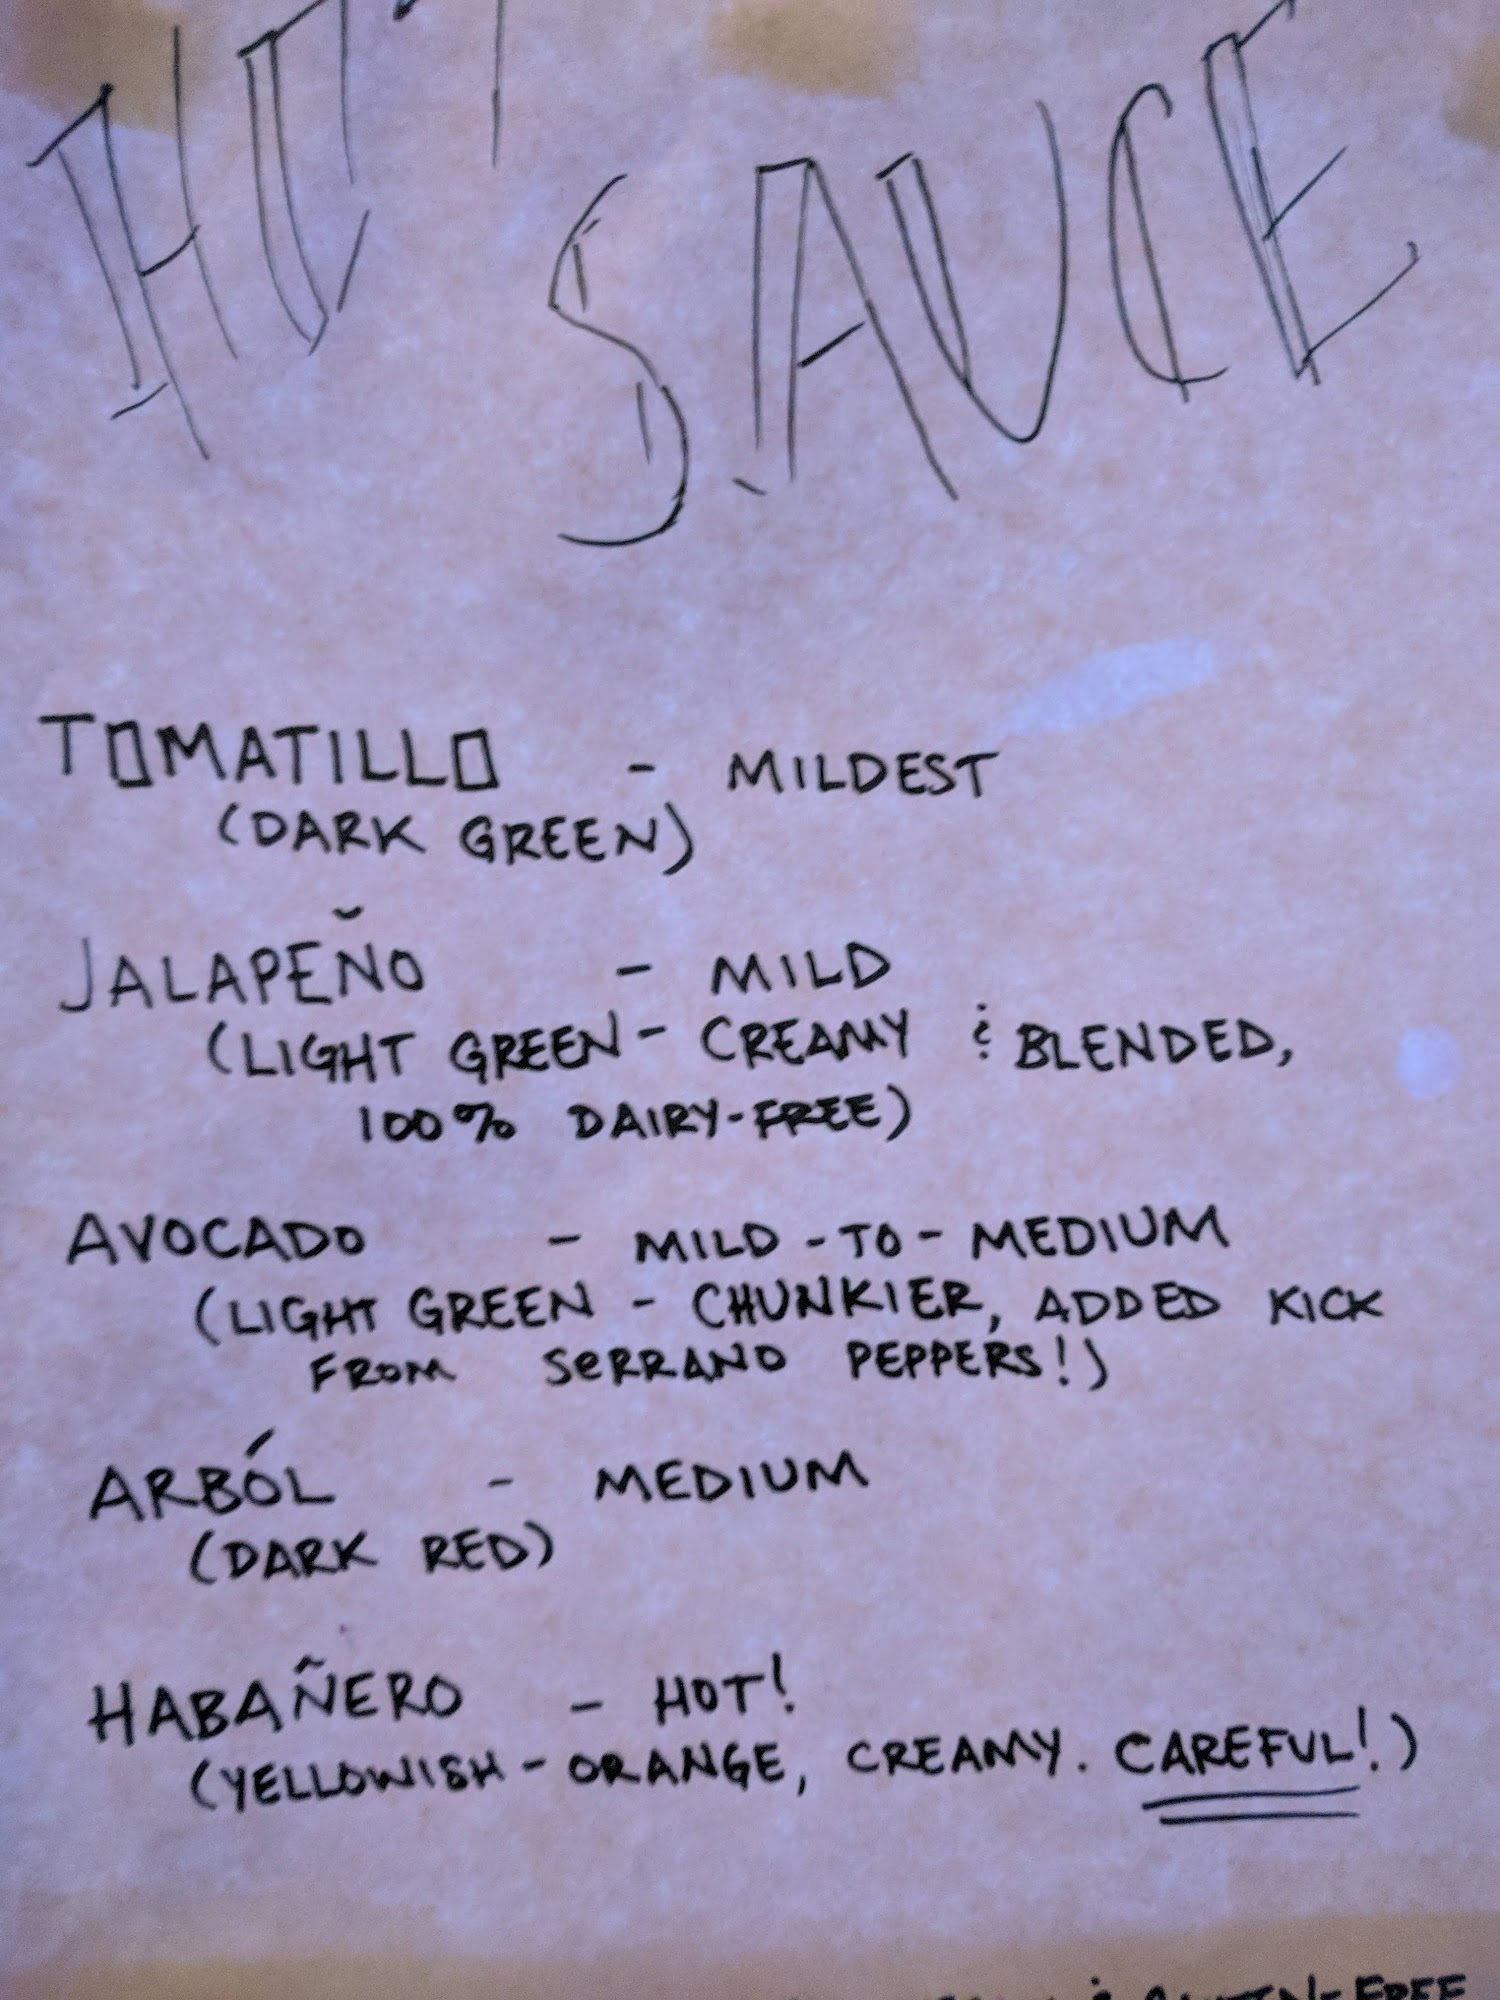 HOT
SAUCE
TOMATILLO - MILDEST
(DARK GREEN)
JALAPEÑO - MILD
(LIGHT GREEN - CREAMY & BLENDED,
100% DAIRY-FREE)
AVOCADO - MILD-TO-MEDIUM
(LIGHT GREEN - CHUNKIER, ADDED KICK
FROM SERRANO PEPPERS!)
ARBÓL - MEDIUM
(DARK RED)
HABAÑERO - HOT!
(YELLOWISH-ORANGE, CREAMY. CAREFUL!)
& GLUTEN-FREE